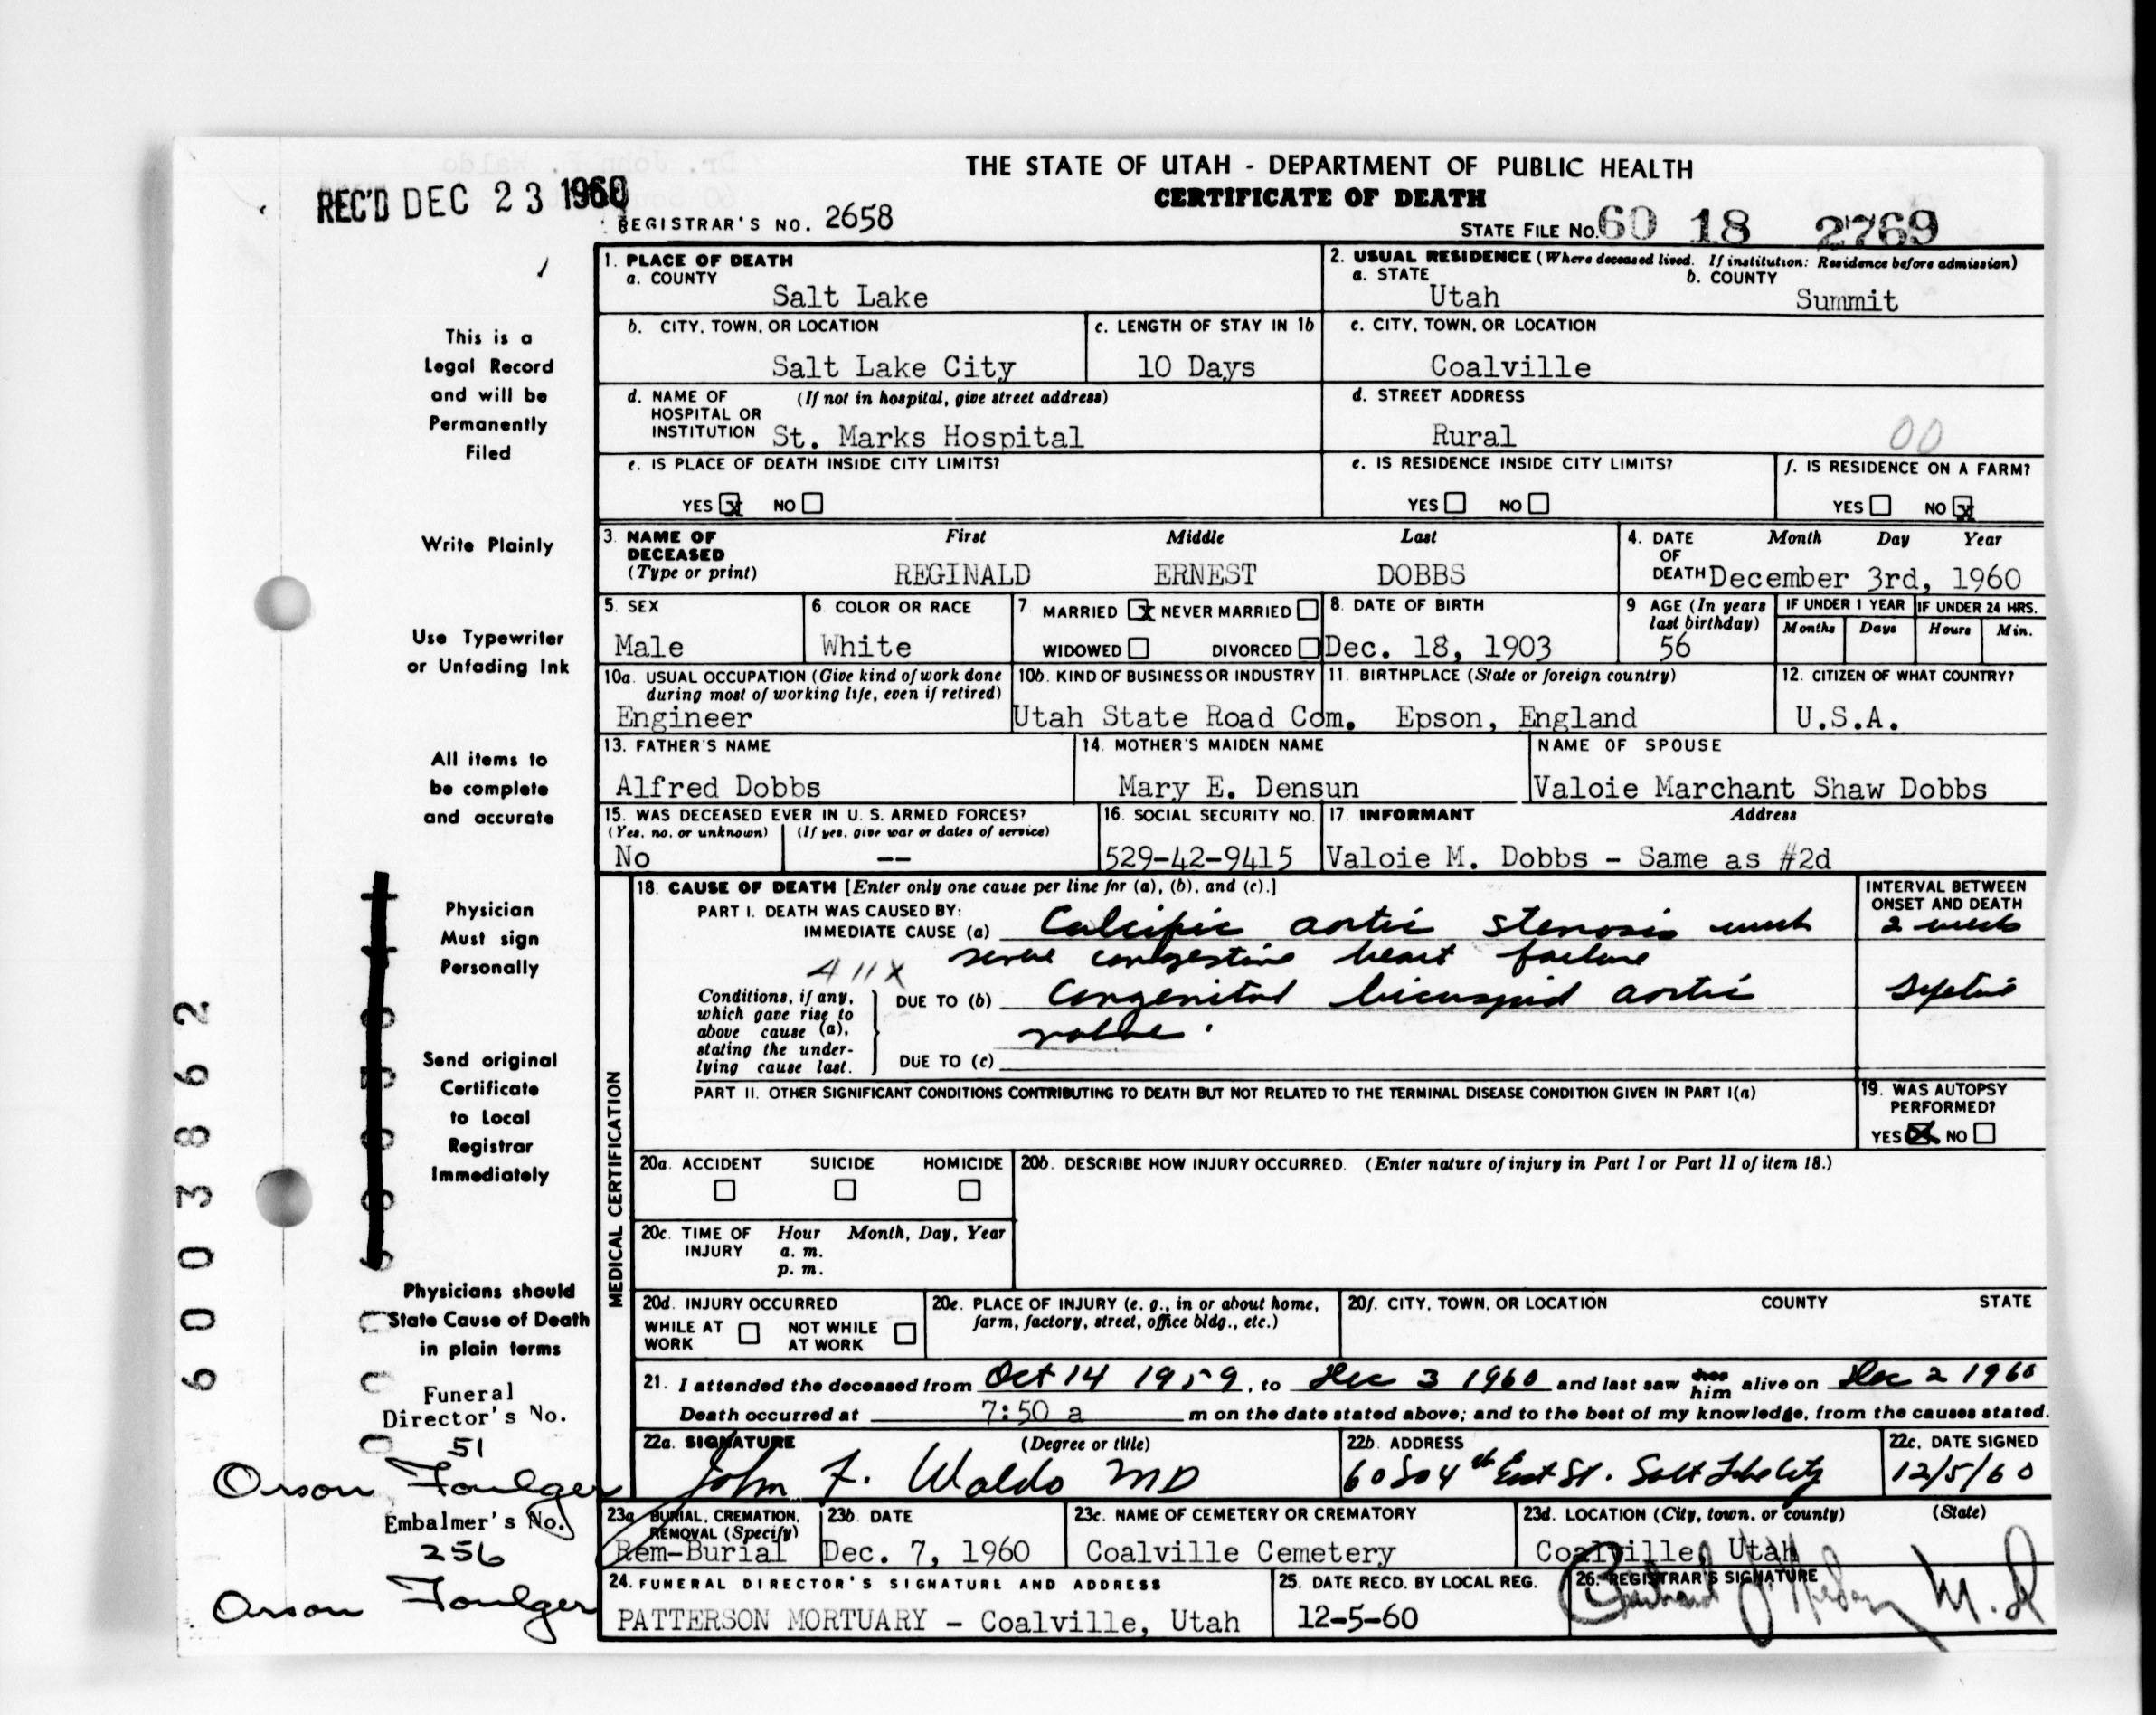 THE STATE OF UTAH - DEPARTMENT OF PUBLIC HEALTH
CERTIFICATE OF DEATH
REC'D DEC 23 1960
REGISTRAR'S NO. 2658
STATE FILE NO. 60 18 2769
1. PLACE OF DEATH
a. COUNTY
Salt Lake
2. USUAL RESIDENCE (Where deceased lived. If institution: Residence before admission)
a. STATE b. COUNTY
Utah Summit
b. CITY, TOWN, OR LOCATION
Salt Lake City
c. LENGTH OF STAY IN 1b
10 Days
c. CITY, TOWN, OR LOCATION
Coalville
d. NAME OF HOSPITAL OR INSTITUTION (If not in hospital, give street address)
St. Marks Hospital
d. STREET ADDRESS
Rural
00
e. IS PLACE OF DEATH INSIDE CITY LIMITS?
YES x NO
e. IS RESIDENCE INSIDE CITY LIMITS?
YES NO
f. IS RESIDENCE ON A FARM?
YES NO x
3. NAME OF DECEASED (Type or print)
First Middle Last
REGINALD ERNEST DOBBS
4. DATE OF DEATH Month Day Year
December 3rd, 1960
5. SEX
Male
6. COLOR OR RACE
White
7. MARRIED x NEVER MARRIED
WIDOWED DIVORCED
8. DATE OF BIRTH
Dec. 18, 1903
9 AGE (In years last birthday)
56
IF UNDER 1 YEAR IF UNDER 24 HRS.
Months Days Hours Min.
10a. USUAL OCCUPATION (Give kind of work done during most of working life, even if retired)
Engineer
10b. KIND OF BUSINESS OR INDUSTRY
Utah State Road Com.
11. BIRTHPLACE (State or foreign country)
Epson, England
12. CITIZEN OF WHAT COUNTRY?
U.S.A.
13. FATHER'S NAME
Alfred Dobbs
14. MOTHER'S MAIDEN NAME
Mary E. Densun
NAME OF SPOUSE
Valoie Marchant Shaw Dobbs
15. WAS DECEASED EVER IN U. S. ARMED FORCES?
(Yes, no, or unknown) (If yes, give war or dates of service)
No --
16. SOCIAL SECURITY NO.
529-42-9415
17. INFORMANT Address
Valoie M. Dobbs - Same as #2d
MEDICAL CERTIFICATION
18. CAUSE OF DEATH [Enter only one cause per line for (a), (b), and (c).]
INTERVAL BETWEEN ONSET AND DEATH
PART I. DEATH WAS CAUSED BY:
IMMEDIATE CAUSE (a) Calcific aortic stenosis
2 weeks
congestive heart failure
411X
Conditions, if any, which gave rise to above cause (a), stating the underlying cause last.
DUE TO (b) Congenital bicuspid aortic
valve.
DUE TO (c)
PART II. OTHER SIGNIFICANT CONDITIONS CONTRIBUTING TO DEATH BUT NOT RELATED TO THE TERMINAL DISEASE CONDITION GIVEN IN PART I(a)
19. WAS AUTOPSY PERFORMED?
YES X NO
20a. ACCIDENT SUICIDE HOMICIDE
20b. DESCRIBE HOW INJURY OCCURRED. (Enter nature of injury in Part I or Part II of item 18.)
20c. TIME OF INJURY Hour Month, Day, Year
a. m.
p. m.
20d. INJURY OCCURRED
WHILE AT WORK NOT WHILE AT WORK
20e. PLACE OF INJURY (e. g., in or about home, farm, factory, street, office bldg., etc.)
20f. CITY, TOWN, OR LOCATION COUNTY STATE
21. I attended the deceased from Oct 14 1959, to Dec 3 1960 and last saw her him alive on Dec 2 1960
Death occurred at 7:50 a m on the date stated above; and to the best of my knowledge, from the causes stated.
22a. SIGNATURE (Degree or title)
John F. Waldo MD
22b. ADDRESS
60 So 4th East St. Salt Lake City
22c. DATE SIGNED
12/5/60
23a. BURIAL, CREMATION, REMOVAL (Specify)
Rem-Burial
23b. DATE
Dec. 7, 1960
23c. NAME OF CEMETERY OR CREMATORY
Coalville Cemetery
23d. LOCATION (City, town, or county) (State)
Coalville, Utah
24. FUNERAL DIRECTOR'S SIGNATURE AND ADDRESS
PATTERSON MORTUARY - Coalville, Utah
25. DATE RECD. BY LOCAL REG.
12-5-60
26. REGISTRAR'S SIGNATURE
M.D.
This is a
Legal Record
and will be
Permanently
Filed
Write Plainly
Use Typewriter
or Unfading Ink
All items to
be complete
and accurate
Physician
Must sign
Personally
Send original
Certificate
to Local
Registrar
Immediately
Physicians should
State Cause of Death
in plain terms
Funeral
Director's No.
51
Orson Foulger
Embalmer's No.
256
Orson Foulger
6003862